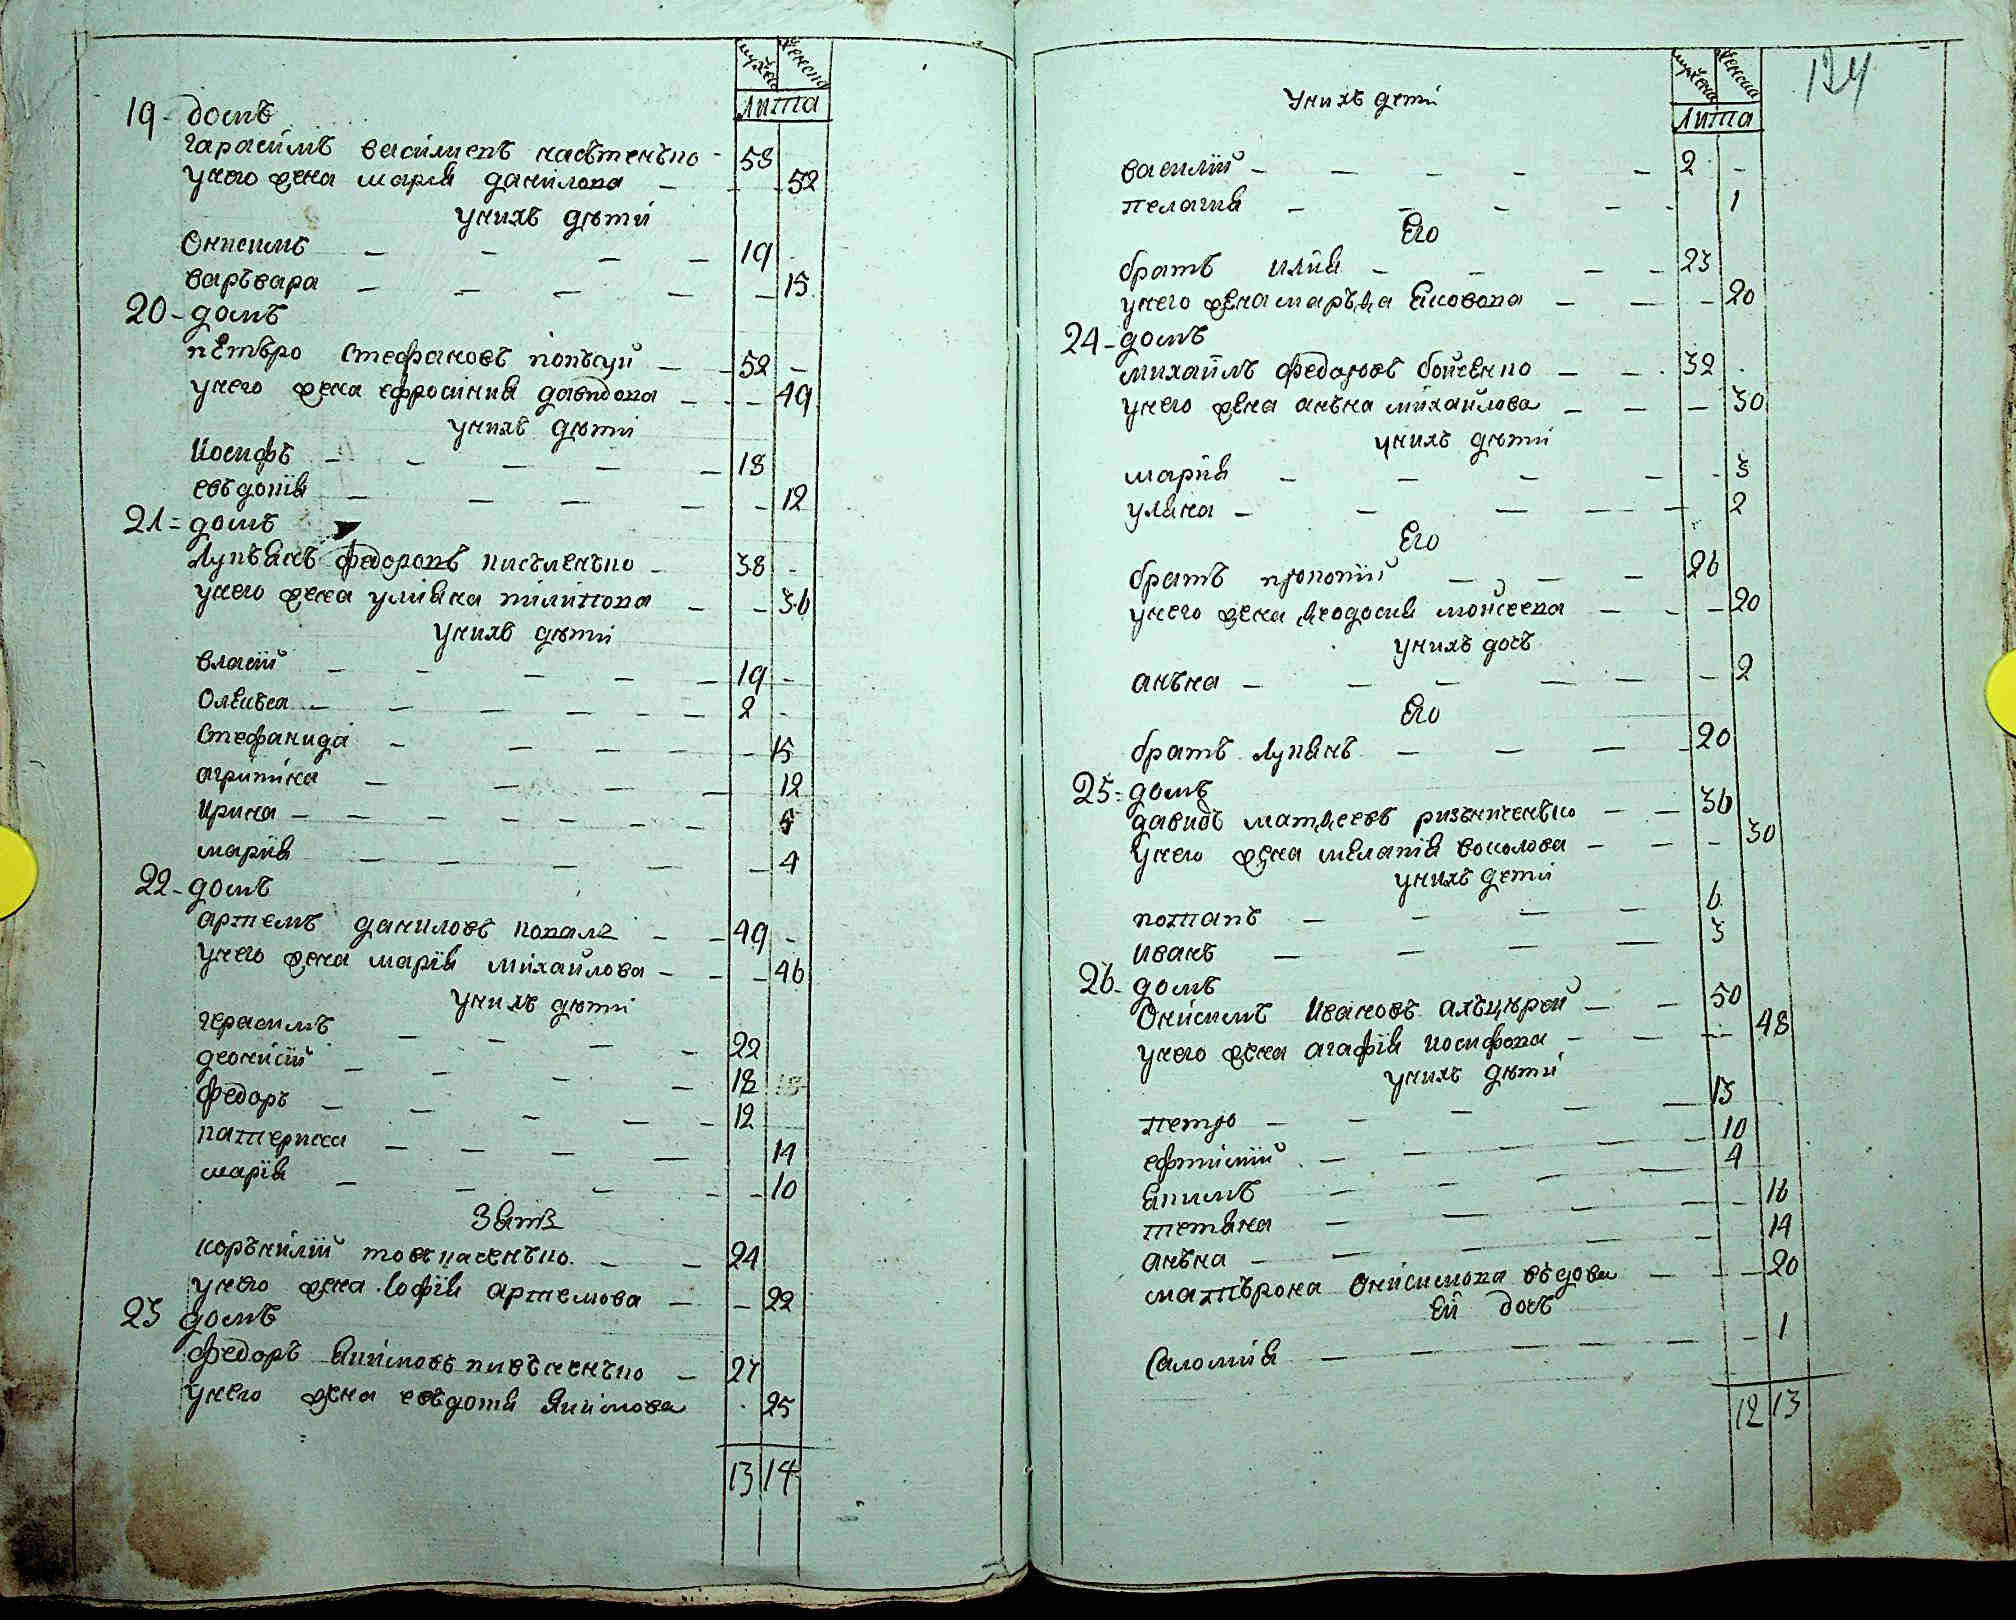 мужеска женска
лита
19 - домъ
гарасимъ василиевъ настенъко - 58
унего жена мария данилова - - 52
унихъ дѣти
Онисимъ - - - - 19
варъвара - - - - - 15
20 - домъ
пЕтъро Стефановъ - - 52 -
унего жена ефросиния давидова - - - 49
унихъ дѣти
Иосифъ - - - - - 18
евъдокия - - - - - 12
21 = домъ
Лукъянъ федоровъ писъменъко - 38 -
унего жена улияна - - 36
унихъ дѣти
власий - - - - - 19 -
ОлЕкъса - - - - - - 2 -
Стефанида - - - - - 15
агрипина - - - - 12
Ирина - - - - - - - - 5
мария - - - - - 4
22 - домъ
артемъ даниловъ - - 49 -
унего жена мария михайлова - - - 46
унихъ дѣти
герасимъ - - - - 22
деонисий - - - - 18
федоръ - - - - - 12
катериса - - - - 14
мария - - - - - 10
Зять
корънилий - - 24
унего жена София артемова - - 22
23 домъ
федоръ Якимовъ - 27
унего жена евъдокия Якимова - 25
13 14
124
мужеска женска
лита
унихъ дети
василий - - - - - 2 -
пелагия - - - - - 1
Его
братъ илия - - - - 23
унего жена маръѳа Яковова - - - 20
24 - домъ
михаилъ федоровъ бойченко - - 32
унего жена анъна михайлова - - - 30
унихъ дѣти
мария - - - - - 3
уляна - - - - - 2
Его
братъ прокопий - - - 26
унего жена ѳеодосия мойсеева - - - 20
унихъ дочъ
анъна - - - - - - 2
Его
братъ Лукянъ - - - - 20
25 = домъ
давидъ матѳеевъ ризъниченъко - - 36
унего жена мелания - - - 30
унихъ дети
потапъ - - - - 6
иванъ - - - - 3
26 - домъ
Онисимъ Ивановъ - - 50
унего жена агафия иосифова - - - 48
унихъ дѣти
петро - - - - - 13
ефтимий - - - - - 10
Якимъ - - - - 4
тетяна - - - - - 16
анъна - - - - - 14
матърона Онисимова въдова - - - 20
Ей дочъ
Саломия - - - - - - 1
12 13